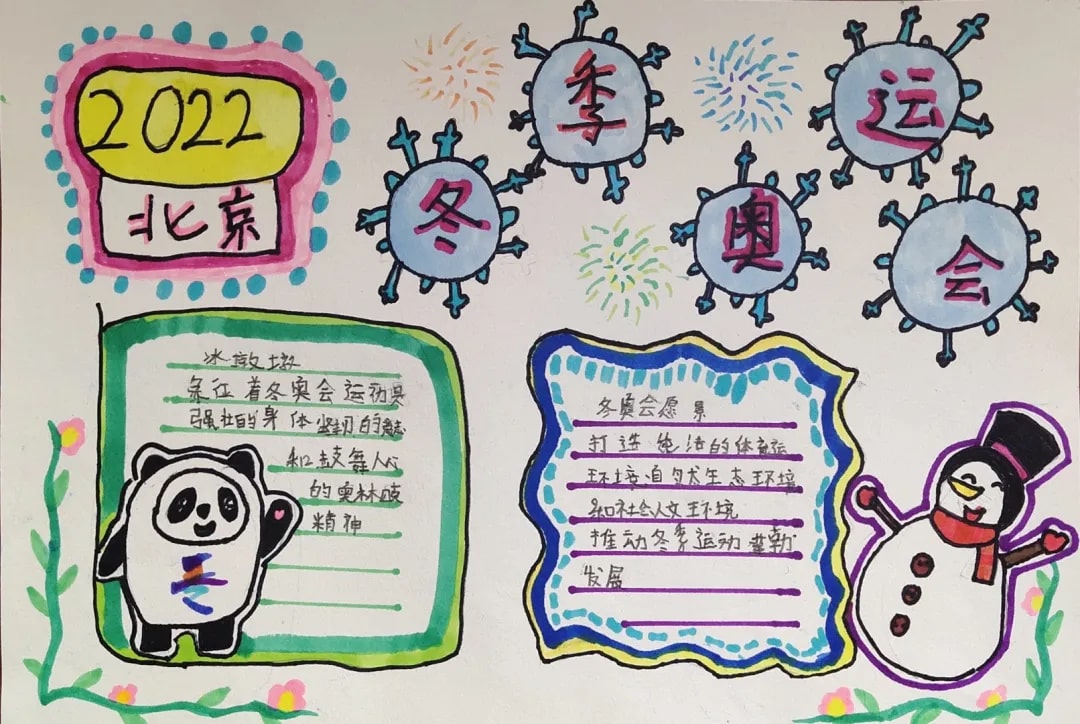 2022
北京
冬季奥运会
冰墩墩
象征着冬奥会运动员
强壮的身体坚韧的意志
和鼓舞人心
的奥林
精神
冬奥会愿景
打造纯洁的体育运
环境自然生态环境
和社会人文环境
推动冬季运动蓬勃
发展